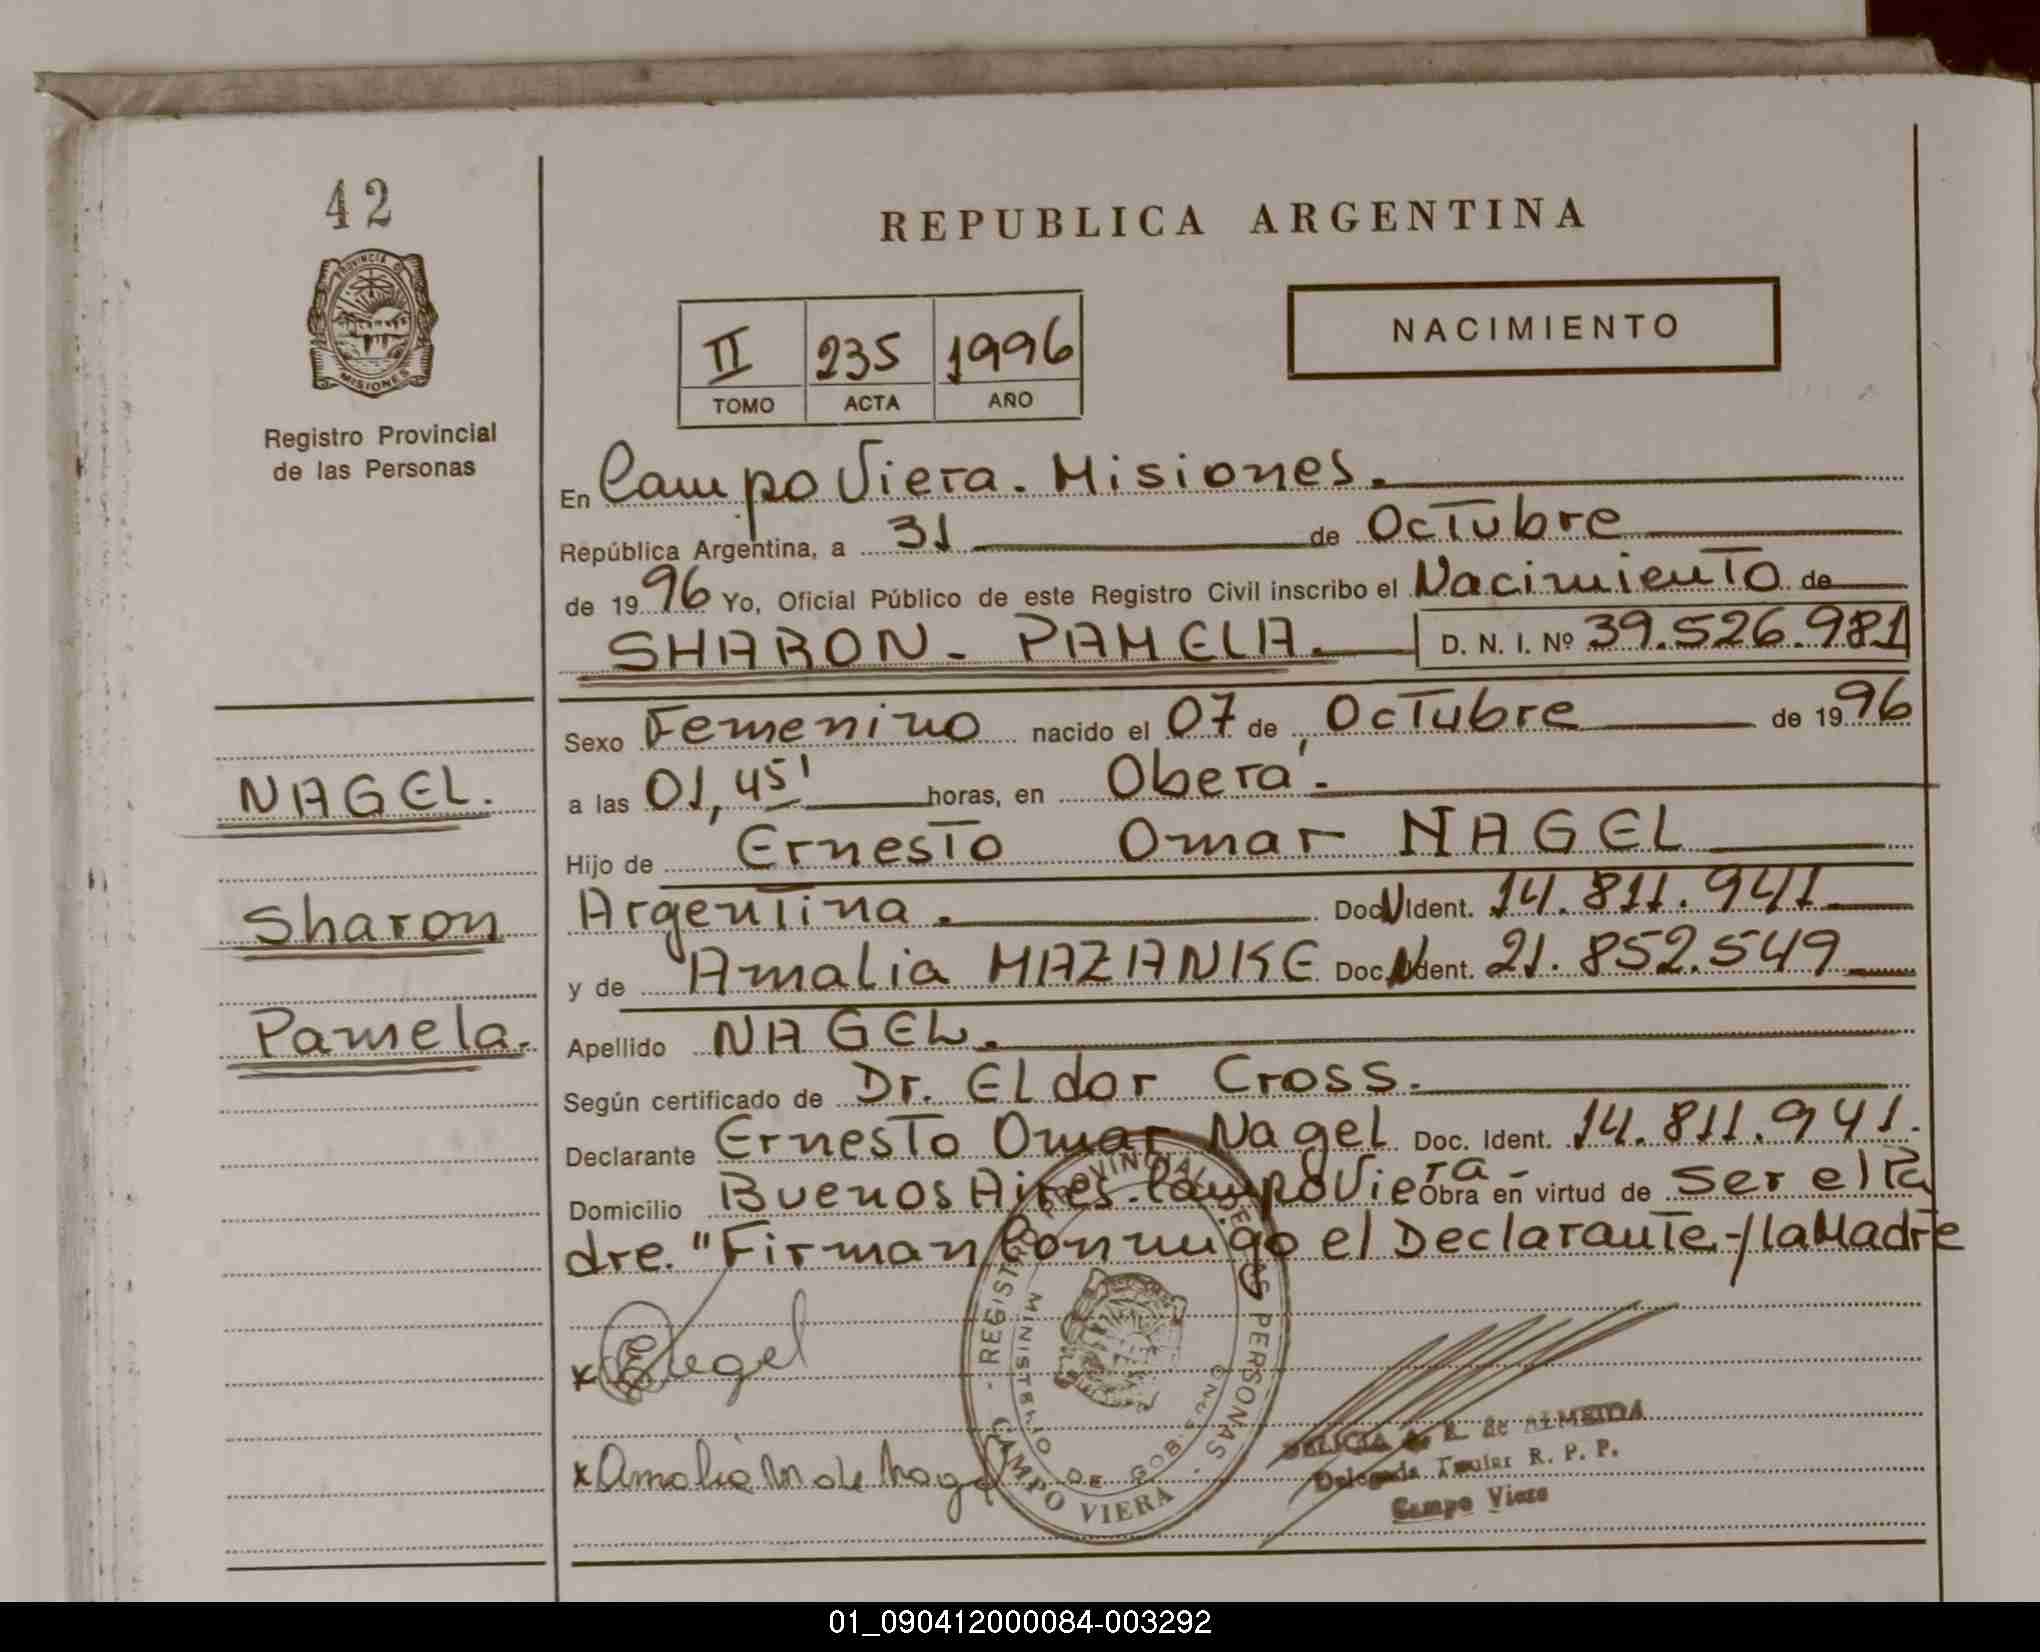 42
PROVINCIA DE
MISIONES
Registro Provincial
de las Personas
NAGEL.
Sharon
Pamela.
REPUBLICA ARGENTINA
NACIMIENTO
II 235 1996
TOMO ACTA AÑO
En Campo Viera. Misiones.
República Argentina, a 31 de Octubre
de 1996 Yo, Oficial Público de este Registro Civil inscribo el Nacimiento de
SHARON - PAMELA. D. N. I. Nº 39.526.981
Sexo Femenino nacido el 07 de Octubre de 1996
a las 01,45' horas, en Oberá.
Hijo de Ernesto Omar NAGEL
Argentina. Doc. N Ident. 14.811.941
y de Amalia MAZANKE Doc. N Ident. 21.852.549
Apellido NAGEL.
Según certificado de Dr. Eldor Cross.
Declarante Ernesto Omar Nagel Doc. Ident. 14.811.941.
Domicilio Buenos Aires. Campo Viera - Obra en virtud de ser el Pa
dre. "Firman Conmigo el Declarante -/la Madre
x Nagel
x Amalia M de Nagel
REGISTRO PROVINCIAL DE LAS PERSONAS -
MINISTERIO DE GOB.
CAMPO VIERA
DELICIA de ALMEIDA
Delegada Titular R. P. P.
Campo Viera
01_090412000084-003292